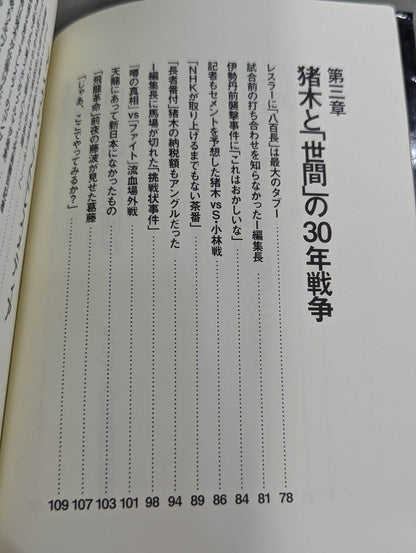 第三章
猪木と「世間」の30年戦争
レスラーに「八百長」は最大のタブー 78
試合前の打ち合わせを知らなかったI編集長 81
伊勢丹前襲撃事件に「これはおかしいな」 84
記者もセメントを予想した猪木vsS・小林戦 86
「NHKが取り上げるまでもない茶番」 89
「長者番付」猪木の納税額もアングルだった 94
I編集長に馬場が切れた「挑戦状事件」 98
「噂の真相」vs「ファイト」流血場外戦 101
天龍にあって新日本になかったもの 103
「飛龍革命」前夜の藤波が見せた葛藤 107
「じゃあ、ここでやってみるか？」 109